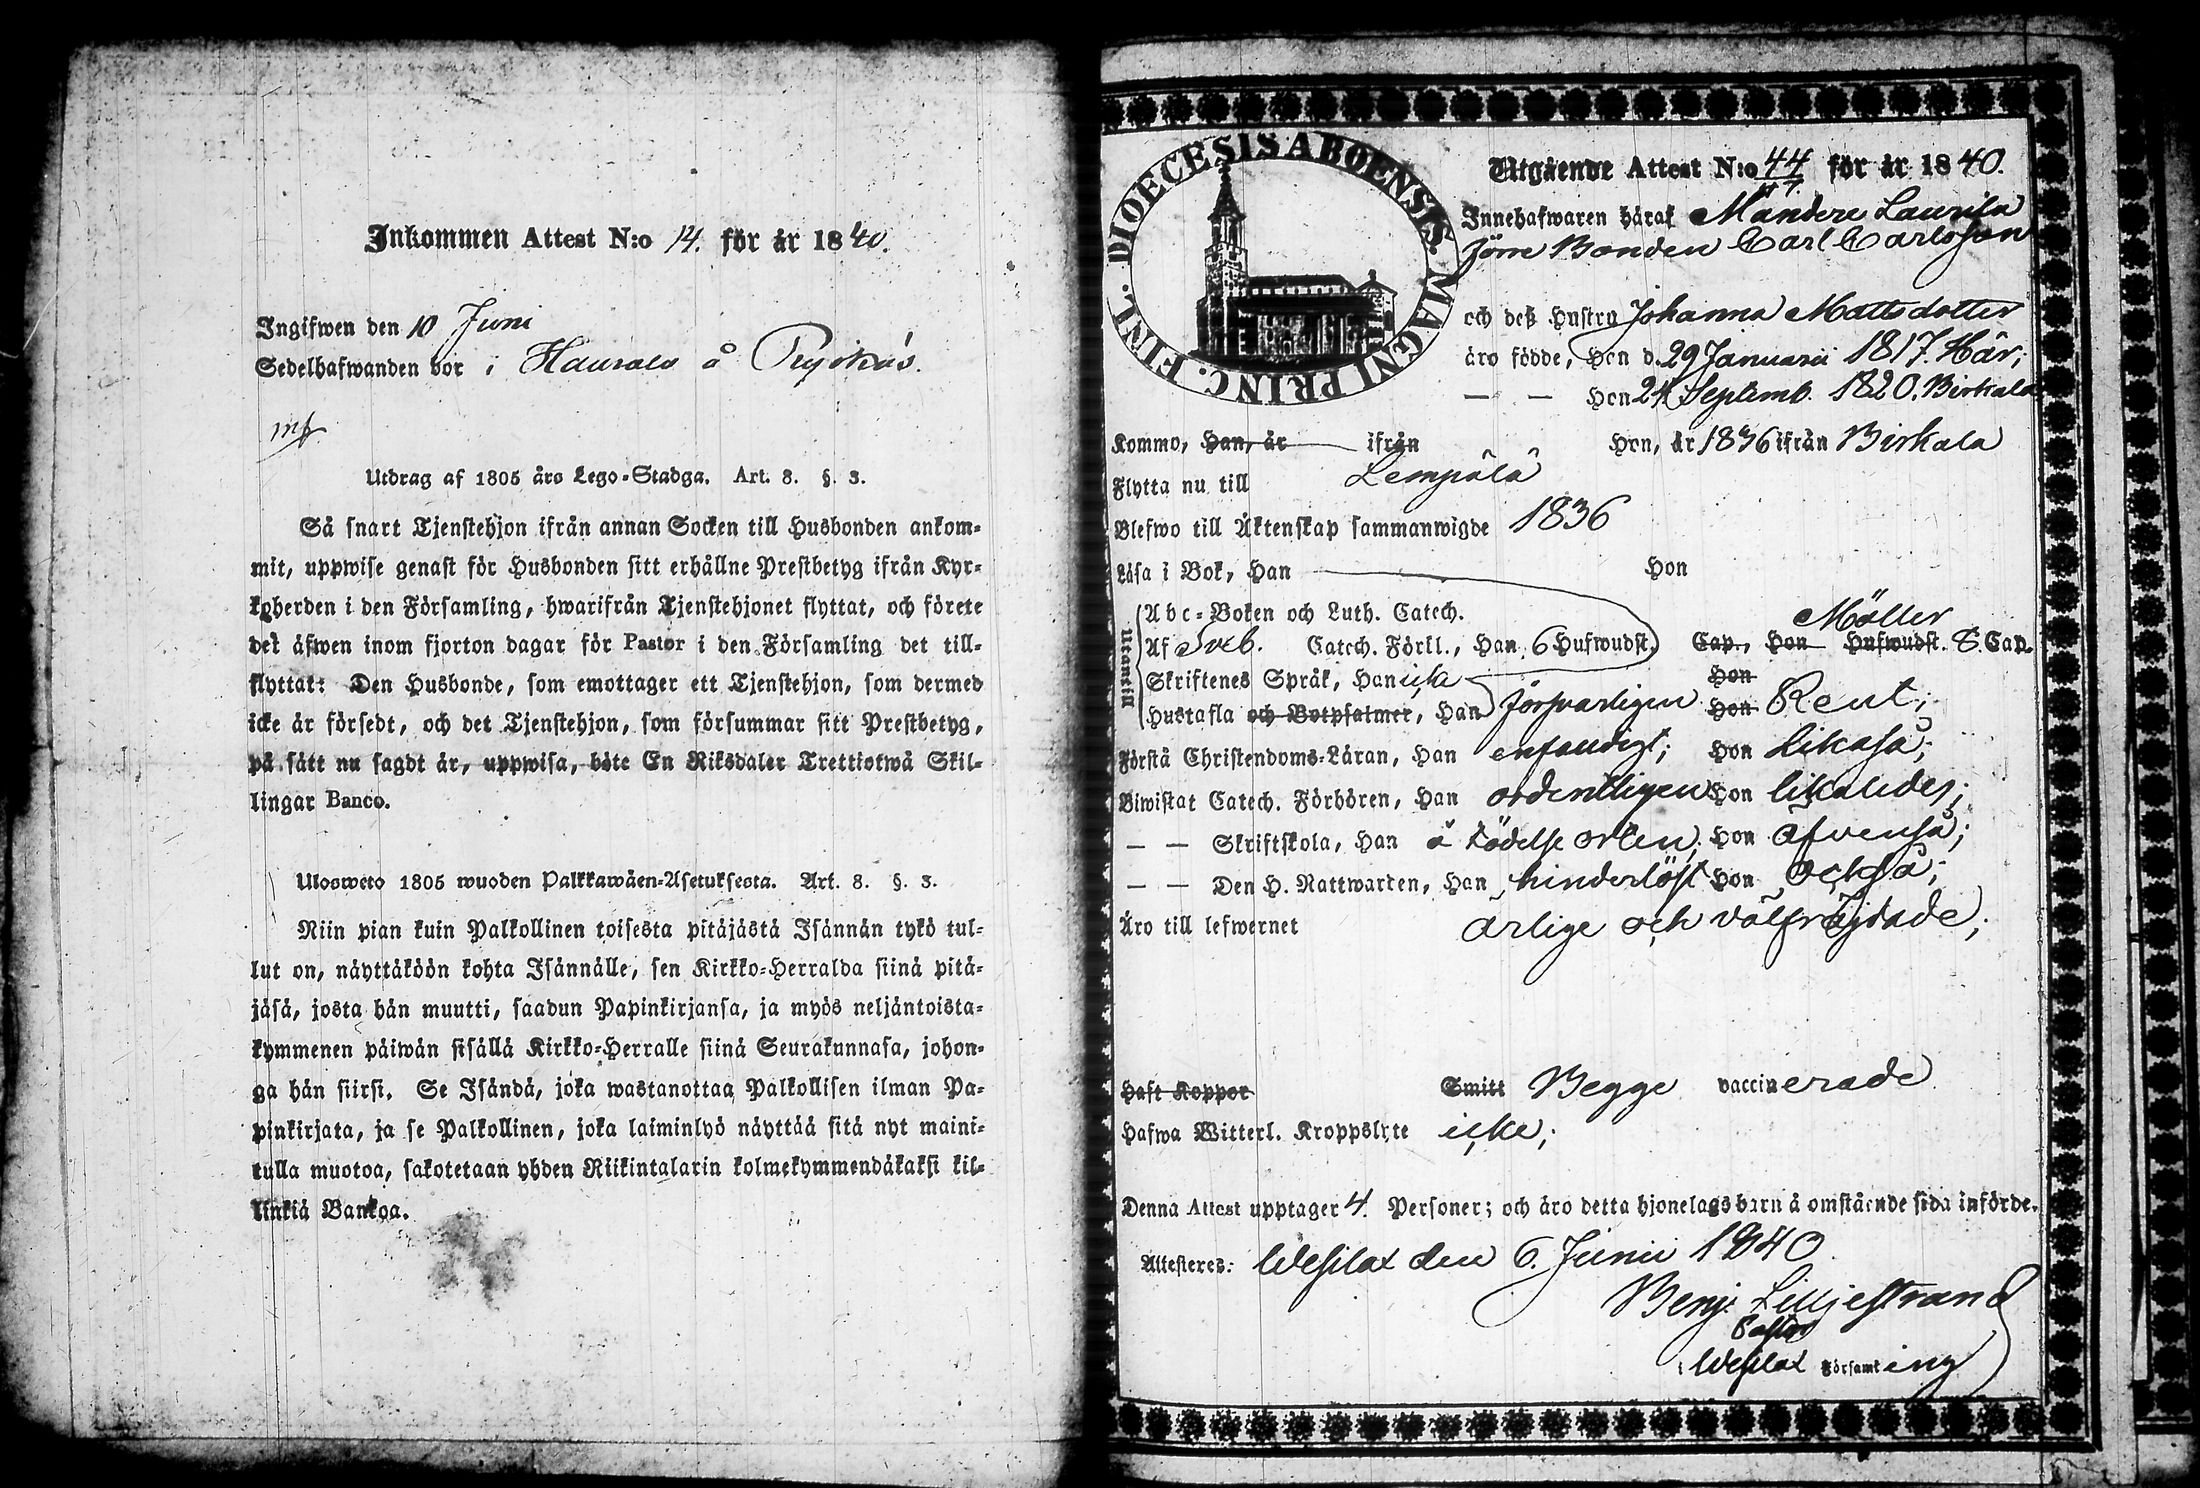 Inkommen Attest N:o 14. för år 1840.
Ingifwen den 10 Juni
Sedelhafwanden bor i Haurala å
Utdrag af 1805 års Lego-Stadga. Art. 8. §. 3.
Så snart Tjenstehjon ifrån annan Socken till Husbonden ankom-
mit, uppwise genast för Husbonden sitt erhållne Prestbetyg ifrån Kyr-
koherden i den Församling, hwarifrån Tjenstehjonet flyttat, och förete
det äfwen inom fjorton dagar för Pastor i den Församling det till-
flyttat: Den Husbonde, som emottager ett Tjenstehjon, som dermed
icke är försedt, och det Tjenstehjon, som försummar sitt Prestbetyg,
på sätt nu sagdt är, uppwisa, böte En Riksdaler Trettiotwå Skil-
lingar Banco.
Ulosweto 1805 wuoden Palkkawäen-Asetuksesta. Art. 8. §. 3.
Niin pian kuin Palkollinen toisesta pitäjästä Isännän tykö tul-
lut on, näyttäköön kohta Isännälle, sen Kirkko-Herralda siinä pitä-
jäsä, josta hän muutti, saadun Papinkirjansa, ja myös neljäntoista-
kymmenen päiwän sisällä Kirkko-Herralle siinä Seurakunnasa, johon-
ga hän siirsi. Se Isändä, joka wastanottaa Palkollisen ilman Pa-
pinkirjata, ja se Palkollinen, joka laiminlyö näyttää sitä nyt maini-
tulla muotoa, sakotetaan yhden Riikintalarin kolmekymmendäkaksi kil-
linkiä Bankoa.
DIOECESIS ABOENSIS. MAGNI PRINC. FINL.
Utgående Attest N:o 44 för år 1840.
Innehafwaren häraf Laurila
förre Bonden Carl Carlsson
och deß Hustru Johanna Mattsdotter
äro födde, Han d. 29 Januarii 1817. Här;
— — Hon 24 Septemb. 1820. Birkala
Kommo, Han, år ifrån Hon, år 1836 ifrån Birkala
Flytta nu till Lempälä
Blefwo till Äktenskap sammanwigde 1836
Läsa i Bok, Han Hon
Utantill
Abc-Boken och Luth. Catech.
Möller
Af Sveb. Catech. Förkl., Han 6 Hufwudst. Cap., Hon Hufwudst. 8. Cap.
Skriftenes Språk, Han icke Hon
Hustafla och Botpsalmer, Han försvarligen Hon Rent;
Förstå Christendoms-Läran, Han enfaudigt; Hon likaså;
Biwistat Catech. Förhören, Han ordentligen Hon likaledes;
— — Skriftskola, Han å födelse orten; Hon äfvenså;
— — Den H. Nattwarden, Han hinderlöst Hon också;
Äro till lefwernet ärlige och välfräjdade;
Haft Koppor Smitt Begge vaccinerade
Hafwa Witterl. Kroppslyte icke;
Denna Attest upptager 4. Personer; och äro detta hjonelags barn å omstående sida införde.
Attesteres: Wesilax den 6. Junii 1840
Benj. Lilljestrand
Pastor
i Wesilax Församling